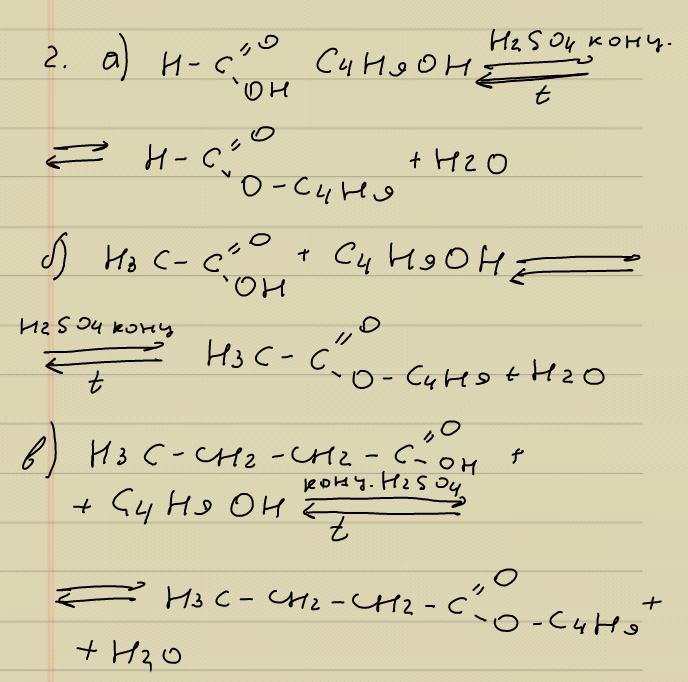 2. а) H-C=O OH C4H9OH ⇌ H2SO4 конц. t
⇌ H-C=O O-C4H9 + H2O
б) H3C-C=O OH + C4H9OH ⇌
H2SO4 конц ⇌ t H3C-C=O O-C4H9 + H2O
в) H3C-CH2-CH2-C=O OH +
+ C4H9OH конц. H2SO4 ⇌ t
⇌ H3C-CH2-CH2-C=O O-C4H9 +
+ H2O